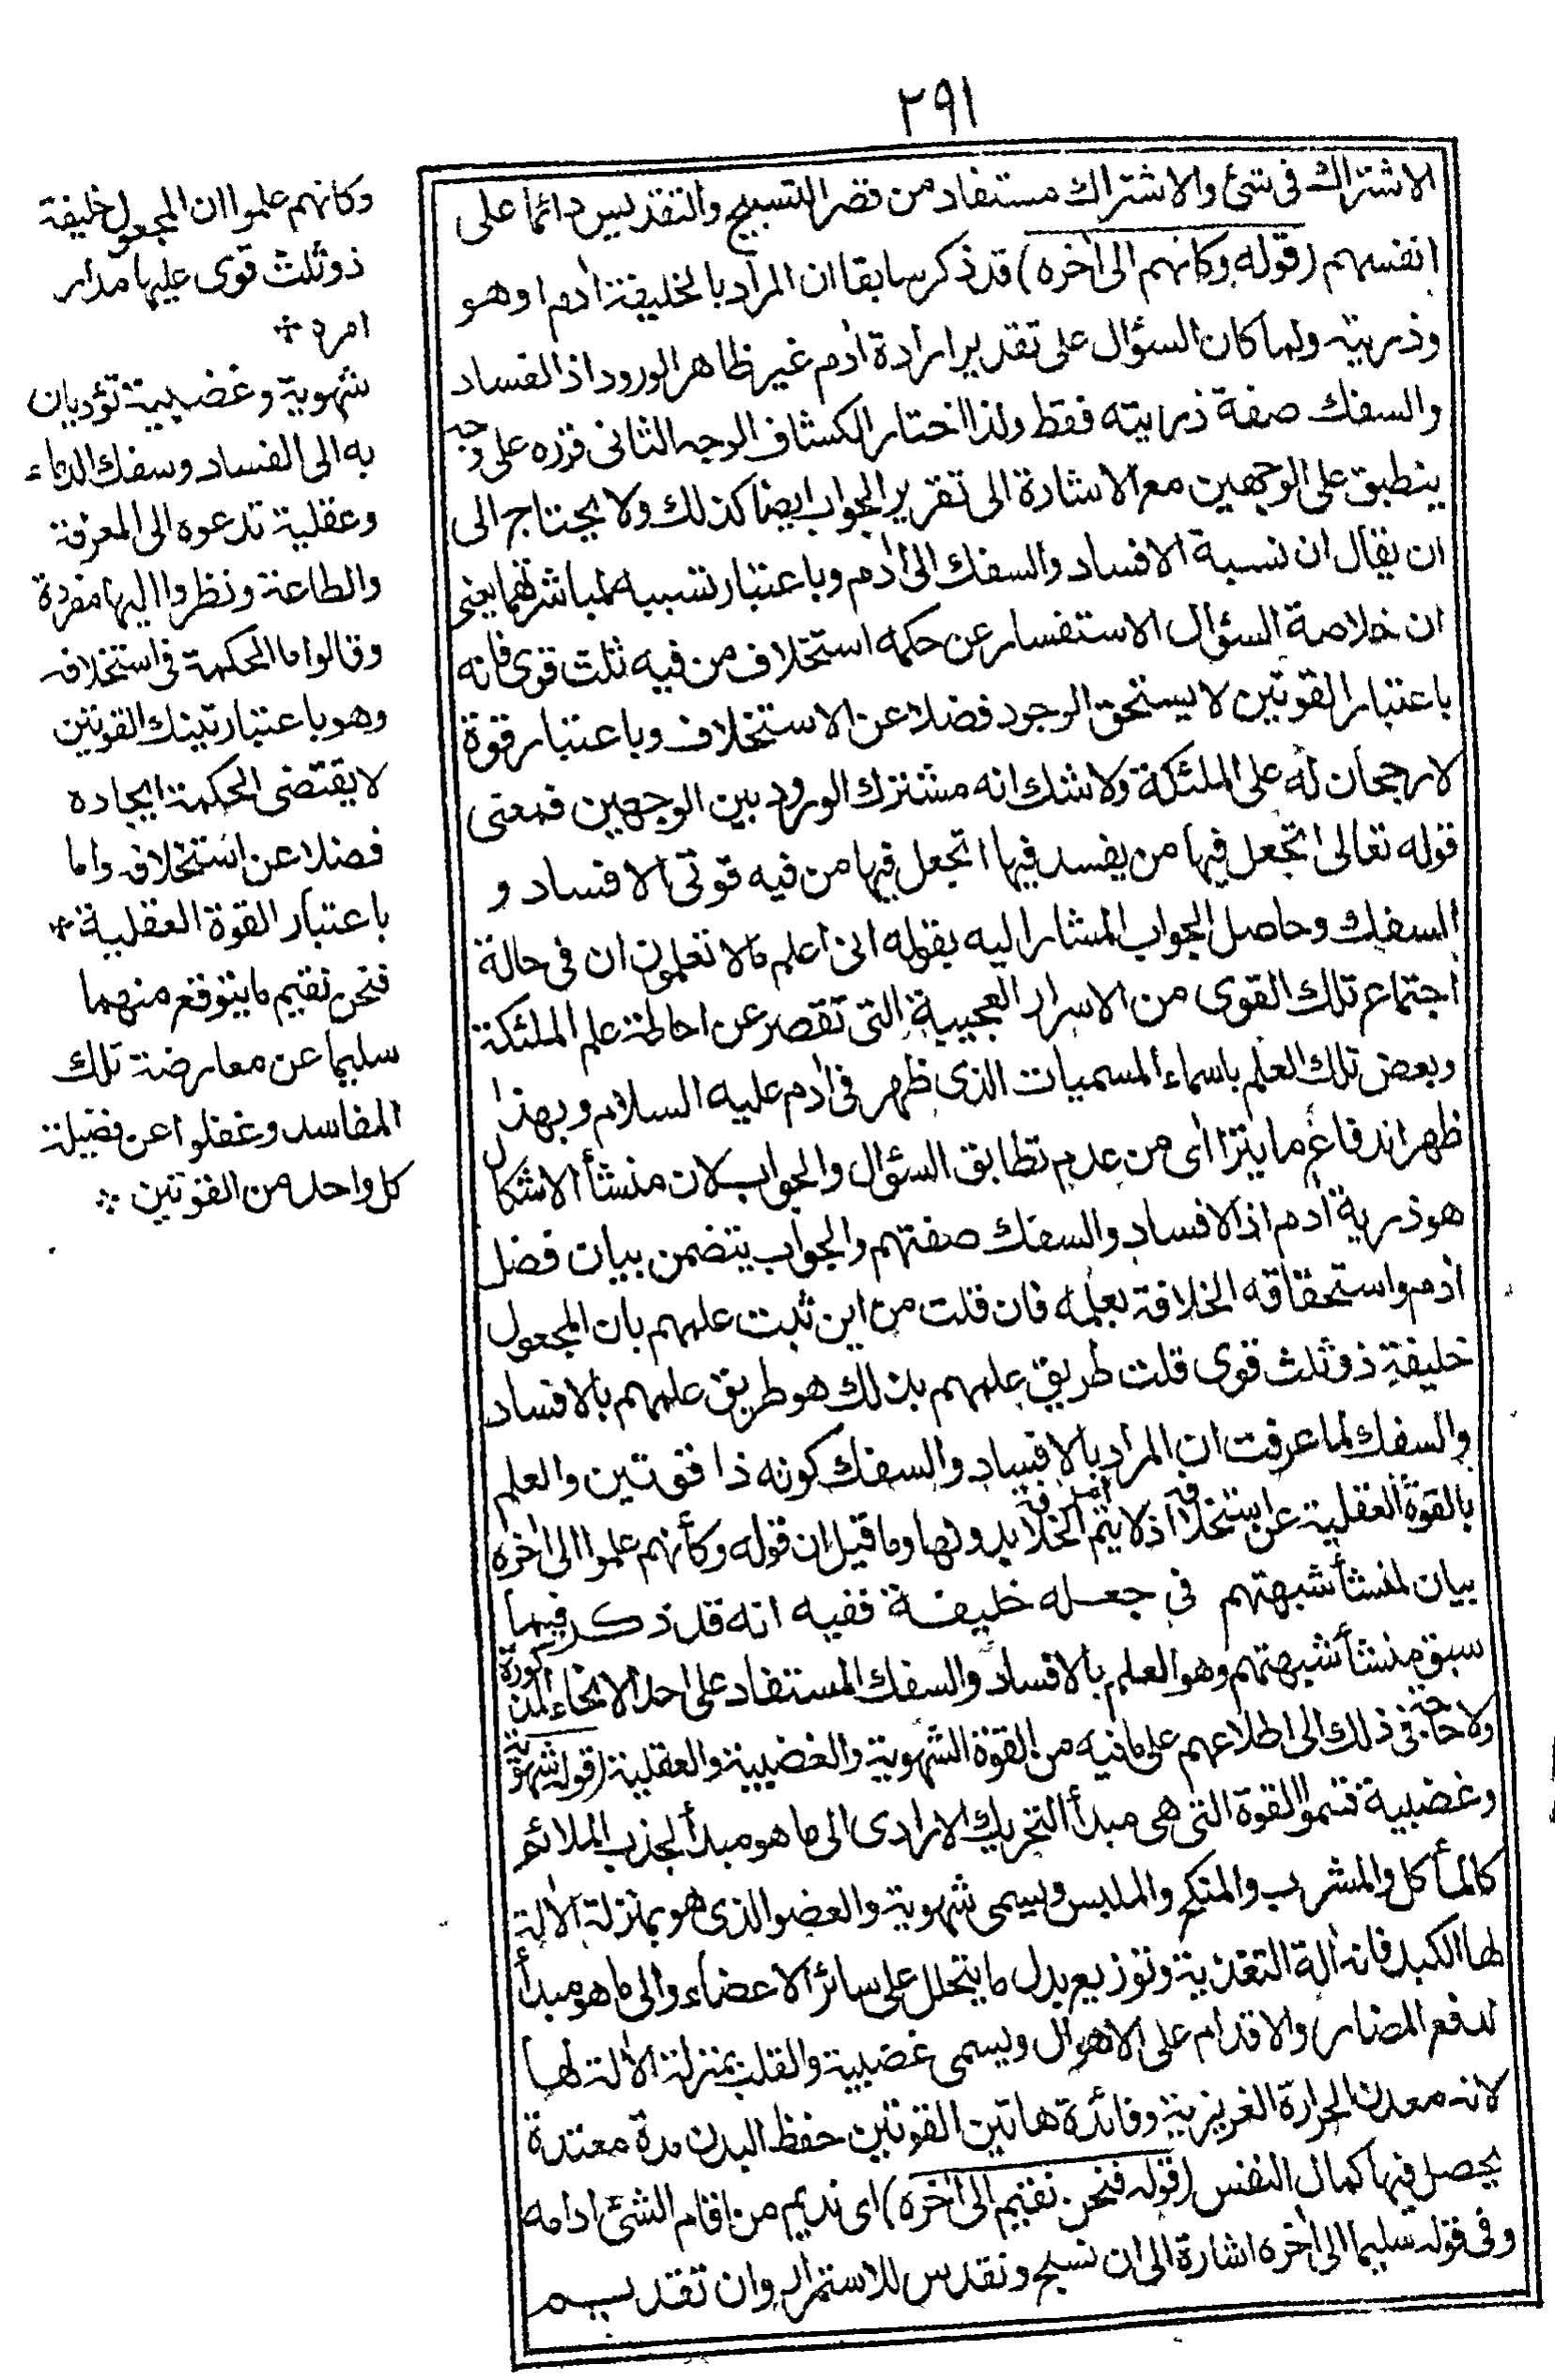 ٢٩١
الاشتراك فى شئ والاشتراك مستفاد من قصر التسبيح والتقديس دائما على
انفسهم (قوله وكانهم الى اخره) قد ذكر سابقا ان المراد بالخليفة ادم او هو
وذريته ولما كان السؤال على تقدير ارادة ادم غير ظاهر الورود اذ الفساد
والسفك صفة ذريته فقط ولذا اختار الكشاف الوجه الثانى قرره على وجه
ينطبق على الوجهين مع الاشارة الى تقرير الجواب ايضا كذلك ولا يحتاج الى
ان يقال ان نسبة الافساد والسفك الى ادم وباعتبار تسببه لمباشرتهما يعنى
ان خلاصة السؤال الاستفسار عن حكمه استخلاف من فيه ثلث قوى فانه
باعتبار القوتين لا يستحق الوجود فضلا عن الاستخلاف وباعتبار قوة
لا رجحان له على الملئكة ولا شك انه مشترك الورود بين الوجهين فمعنى
قوله تعالى اتجعل فيها من يفسد فيها اتجعل فيها من فيه قوتى الافساد و
السفك وحاصل الجواب المشار اليه بقوله انى اعلم ما لا تعلمون ان فى حالة
اجتماع تلك القوى من الاسرار العجيبية التى تقصر عن احاطة علم الملئكة
وبعض تلك العلم باسماء المسميات الذى ظهر فى ادم عليه السلام وبهذا
ظهر اندفاع ما يترااى من عدم تطابق السؤال والجواب لان منشأ الاشكال
هو ذرية ادم اذ الافساد والسفك صفتهم والجواب يتضمن بيان فضل
ادم واستحقاقه الخلافة بعلمه فان قلت من اين ثبت علمهم بان المجعول
خليفة ذو ثلث قوى قلت طريق علمهم بذلك هو طريق علمهم بالافساد
والسفك لما عرفت ان المراد بالافساد والسفك كونه ذا قوتين والعلم
بالقوة العقلية عن استخلافه اذ لا يتم امر الخلافة بدونها وما قيل ان قوله وكأنهم علموا الى اخره
بيان لمنشأ شبهتهم فى جعله خليفة ففيه انه قد ذكر فيما
سبق منشأ شبهتهم وهو العلم بالافساد والسفك المستفاد على احد الانحاء المذكورة
ولا حاجة فى ذلك الى اطلاعهم على ما فيه من القوة الشهوية والغضبية والعقلية (قوله شهوية
وغضبية قسموا القوة التى هى مبدأ التحريك الارادى الى ما هو مبدأ لجذب الملائم
كالمأكل والمشرب والمنكح والملبس ويسمى شهوية والعضو الذى هو بمنزلة الالة
لها الكبد فانه الة التغذية وتوزيع بدل ما يتحلل على سائر الاعضاء والى ما هو مبدأ
لدفع المضار والاقدام على الاهوال ويسمى غضبية والقلب بمنزلة الالة لها
لانه معدن الحرارة الغريزية وفائدة هاتين القوتين حفظ البدن مدة معتدة
يحصل فيها كمال النفس (قوله فنحن نقيم الى اخره) اى نديم من اقام الشئ ادامه
وفى قوله سليما الى اخره اشارة الى ان نسبح ونقدس للاستمرار وان تقديم
وكانهم علموا ان المجعول خليفة
ذو ثلث قوى عليها مدار
امره
شهوية وغضبية تؤديان
به الى الفساد وسفك الدماء
وعقلية تدعوه الى المعرفة
والطاعة ونظروا اليها مفردة
وقالوا ما الحكمة فى استخلافه
وهو باعتبار تينك القوتين
لا يقتضى الحكمة ايجاده
فضلا عن استخلافه واما
باعتبار القوة العقلية
فنحن نقيم ما يتوقع منهما
سليما عن معارضة تلك
المفاسد وغفلوا عن فضيلة
كل واحد من القوتين